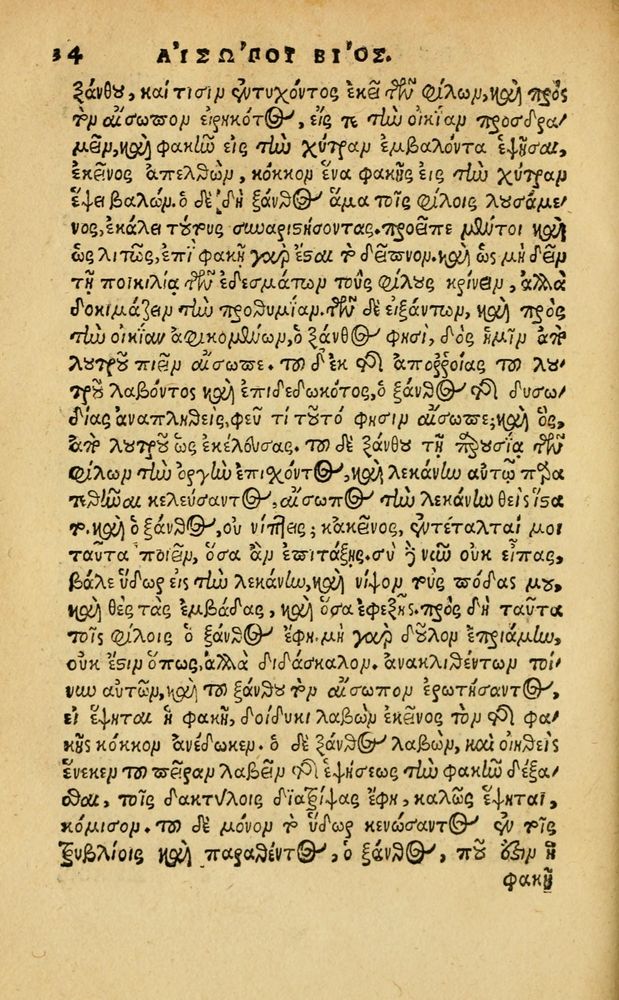 34 ΑἸΣΩΠΟΥ ΒΙΌΣ.
ξάνθου, καί τισιμ ἐντυχόντος ἐκεῖ τῶν φίλωμ, καὶ πρὸς
τὸμ αἴσωπομ εἰρηκότος, εἴς τε τὴν οἰκίαμ προσδρα⸗
μεῖμ, καὶ φακῶ εἰς τὴν χύτραμ ἐμβαλόντα ἑψῆσαι,
ἐκεῖνος ἀπελθὼμ, κόκκομ ἕνα φακῆς εἰς τὴν χύτραμ
ἕψει βαλώμ. ὁ δὲ δὴ ξάνθος ἅμα τοῖς φίλοις λουσάμε⸗
νος, ἐκάλει τούτους συναριστήσοντας. προεῖπε μέντοι καὶ
ὡς λιτῶς, ἐπὶ φακῇ γὰρ ἔσαι τὸ δεῖπνομ. καὶ ὡς μὴ δέμ
τῇ ποικιλίᾳ τῶν ἐδεσμάτωμ τοὺς φίλους κρίνειμ, ἀλλὰ
δοκιμάζειμ τὴν προθυμίαμ. τῶν δὲ εἰξάντωμ, καὶ πρὸς
τὴν οἰκίαν ἀφικομένωμ, ὁ ξάνθος φησὶ, δὸς ἡμῖμ ἀπὸ
λουτροῦ πιεῖμ αἴσωπε. τοῦ δ' ἐκ τῆς ἀποῤῥοίας τοῦ λου⸗
τροῦ λαβόντος καὶ ἐπιδεδωκότος, ὁ ξάνθος τῆς δυσω⸗
δίας ἀναπλησθεὶς, φεῦ τί τοῦτό φησιμ αἴσωπε; καὶ ὃς,
ἀπὸ λουτροῦ ὡς ἐκέλευσας. τοῦ δὲ ξάνθου τῇ παρουσίᾳ τῶν
φίλωμ τὴν ὀργὴν ἐπισχόντος, καὶ λεκάνην αὐτῷ παρα
τεθῆναι κελεύσαντος, αἴσωπος τὴν λεκάνην θεὶς ἵστα
το. καὶ ὁ ξάνθος, οὐ νίπτεις; κἀκεῖνος, ἐντέταλταί μοι
ταῦτα ποιεῖμ, ὅσα ἂμ ἐπιτάξῃς. σὺ δὲ νῦν οὐκ εἶπας,
βάλε ὕδωρ εἰς τὴν λεκάνην, καὶ νίψομ τοὺς πόδας μου,
καὶ θὲς τὰς ἐμβάδας, καὶ ὅσα ἐφεξῆς. πρὸς δὴ ταῦτα
τοῖς φίλοις ὁ ξάνθος ἔφη. μὴ γὰρ δοῦλομ ἐπριάμην,
οὐκ ἔστιμ ὅπως, ἀλλὰ διδάσκαλομ. ἀνακλιθέντωμ τοί⸗
νυν αὐτῶμ, καὶ τοῦ ξάνθου τὸμ αἴσωπομ ἐρωτήσαντος,
εἰ ἕψηται ἡ φακῆ, δοίδυκι λαβὼμ ἐκεῖνος τὸμ τῆς φα⸗
κῆς κόκκομ ἀνέδωκεμ. ὁ δὲ ξάνθος λαβὼμ, καὶ οἰηθεὶς
ἕνεκεμ τοῦ πεῖραμ λαβεῖμ τῆς ἑψήσεως τὴν φακῆν δέξα⸗
σθαι, τοῖς δακτύλοις διατρίψας ἔφη, καλῶς ἕψηται,
κόμισομ. τοῦ δὲ μόνομ τὸ ὕδωρ κενώσαντος ἐν τοῖς
τρυβλίοις καὶ παραθέντος, ὁ ξάνθος, ποῦ ἐστιμ ἡ
φακῆ